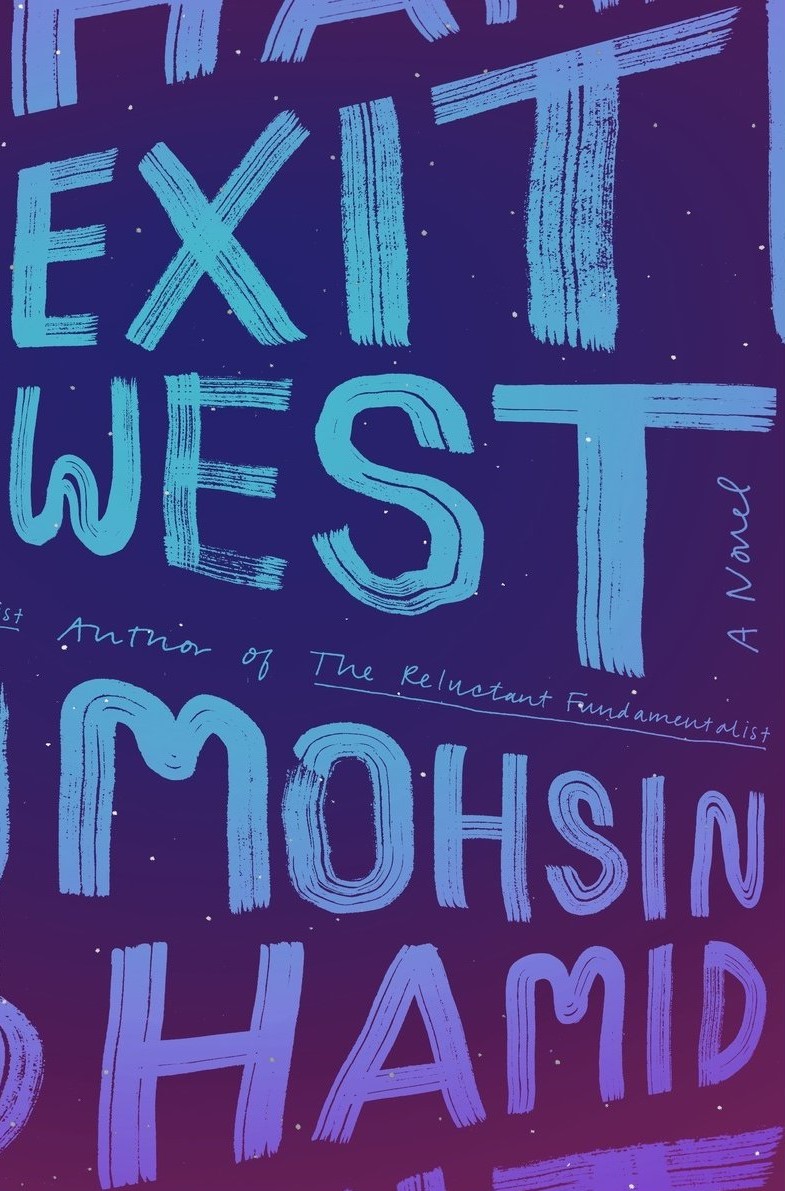 HAM
EXIT
WEST
A Novel
ist Author of The Reluctant Fundamentalist
MOHSIN
HAMID